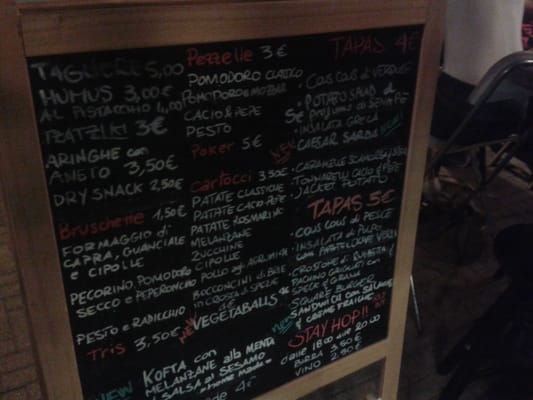 TAGLIERE 5,00
HUMUS 3,00€
AL PISTACCHIO 4,00
TZATZIKI 3€
ARINGHE con
ANETO 3,50€
DRY SNACK 2,50€
Bruschette 1,50€
FORMAGGIO di
CAPRA, GUANCIALE
e CIPOLLE
PECORINO, POMODORO
SECCO e PEPERONCINO
PESTO e RADICCHIO
Tris 3,50€
NEW KOFTA con
MELANZANE alla MENTA
e SALSA al SESAMO
"home made"
4€
Pezzelle 3€
POMODORO CLASSICO
POMODORO e MOZZAR
CACIO & PEPE
PESTO
Poker 5€
NEW
Cartocci 3,50€
PATATE CLASSICHE
PATATE CACIO e PEPE
PATATE ROSMARINO
MELANZANE
ZUCCHINE
CIPOLLE
POLLO agli AGRUMI
BOCCONCINI di BRIE
in CROSTA di SPEZIE
NEW VEGETABALLS
TAPAS 4€
COUS COUS di VERDURE
POTATO SALAD di
INSALATA GRECA
CAESAR SARDA NEW!
CARAMELLE SCAMORZA
TONNARELLI CACIO & PEPE
JACKET POTATO
TAPAS 5€
COUS COUS di PESCE
INSALATA di POLPO
CROSTONE di
PACHINO GRIGLIATI con
SPECK e GRANA
SQUARE BURGER
NEW SANDWICH con SALMONE
& CREME FRAICHE
STAY HOP!!
dalle 18:00 alle 20:00
BIRRA 3,50€
VINO 2,50€